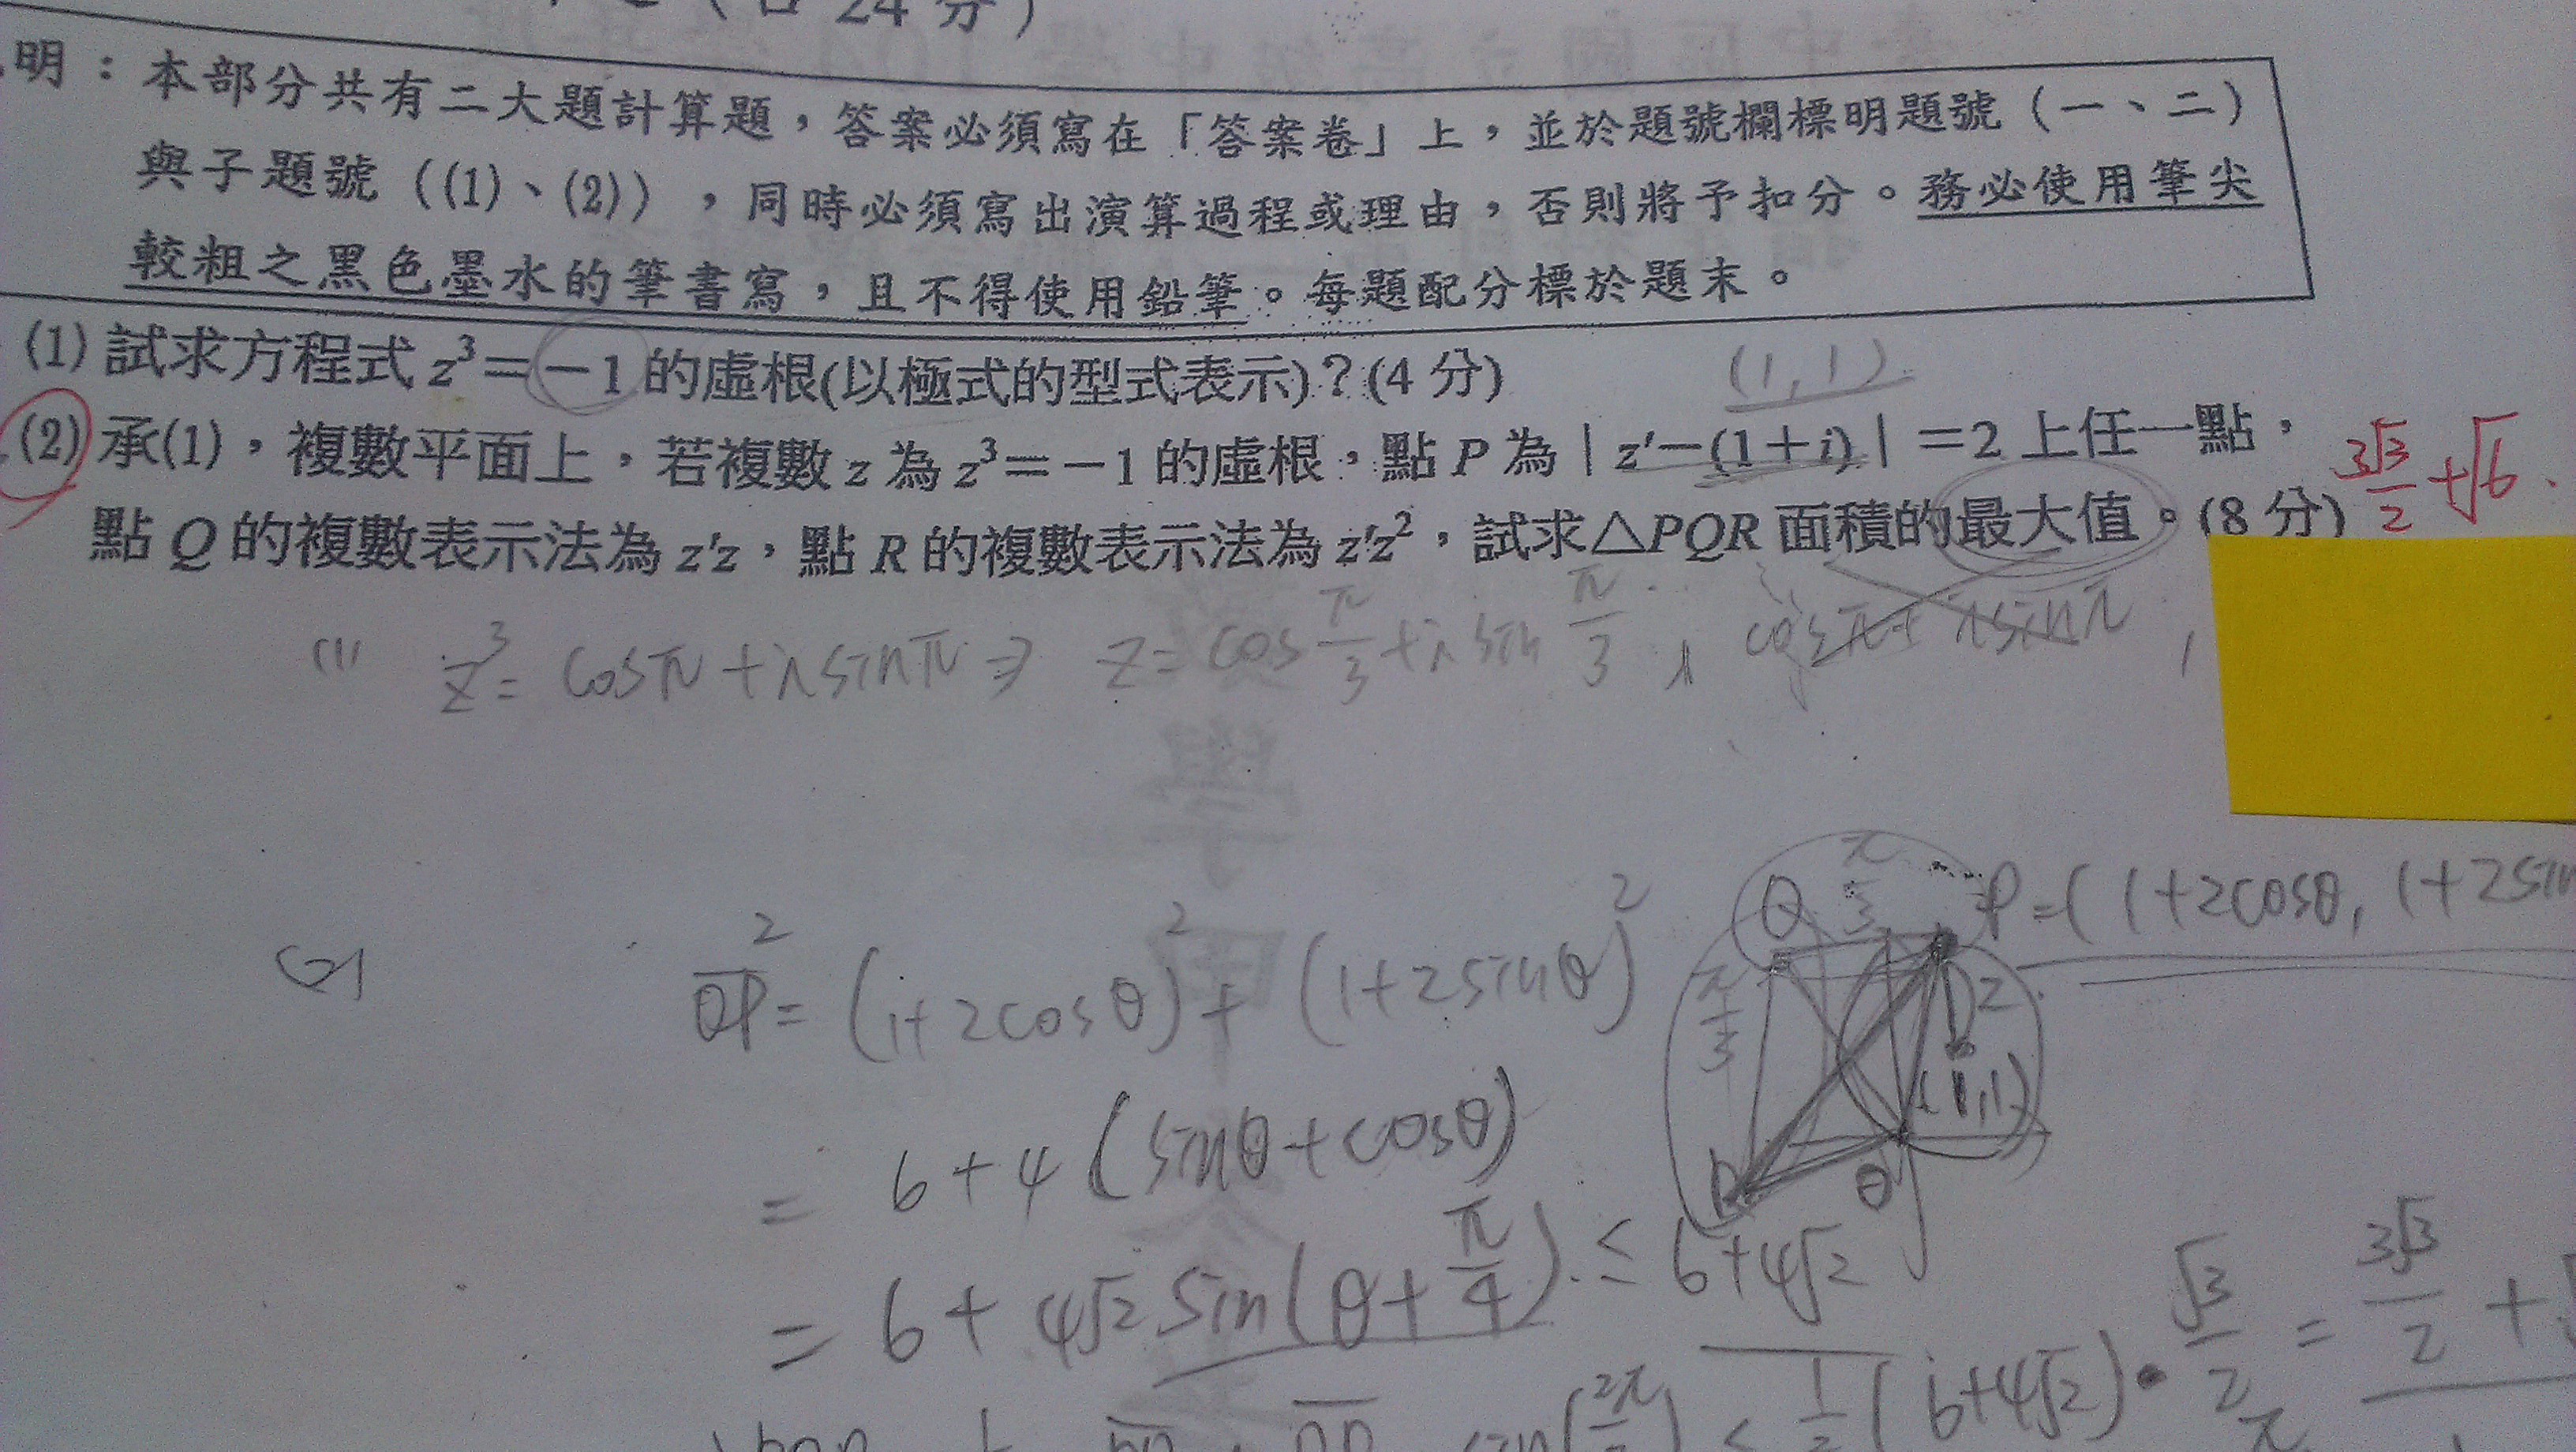 (各 24 分)
明：本部分共有二大題計算題，答案必須寫在「答案卷」上，並於題號欄標明題號（一、二）
與子題號（(1)、(2)），同時必須寫出演算過程或理由，否則將予扣分。務必使用筆尖
較粗之黑色墨水的筆書寫，且不得使用鉛筆。每題配分標於題末。
(1) 試求方程式 z³＝－1 的虛根(以極式的型式表示)？(4 分)
(1,1)
(2) 承(1)，複數平面上，若複數 z 為 z³＝－1 的虛根，點 P 為｜z′－(1＋i)｜＝2 上任一點，
點 Q 的複數表示法為 z′z，點 R 的複數表示法為 z′z²，試求△PQR 面積的最大值。(8 分)
3√3/2 + √6.
(1) z³ = cosπ + i sinπ ⇒ z = cos π/3 + i sin π/3, cosπ + i sinπ,
(2) OP² = (1+2cosθ)² + (1+2sinθ)²
= 6 + 4(sinθ + cosθ)
= 6 + 4√2 sin(θ + π/4) ≤ 6 + 4√2
Q π/3 P = (1+2cosθ, 1+2sin
π/3 2
(1,1)
R O
≤ 1/2 (6+4√2) · √3/2 = 3√3/2 +